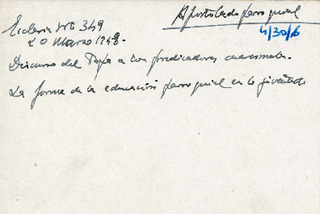 Apostolado parroquial
Ecclesia nro 349
4/30/6
20 Marzo 1948.
Discurso del Papa a los predicadores cuaresmales.
La forma de la educación parroquial en la juventud